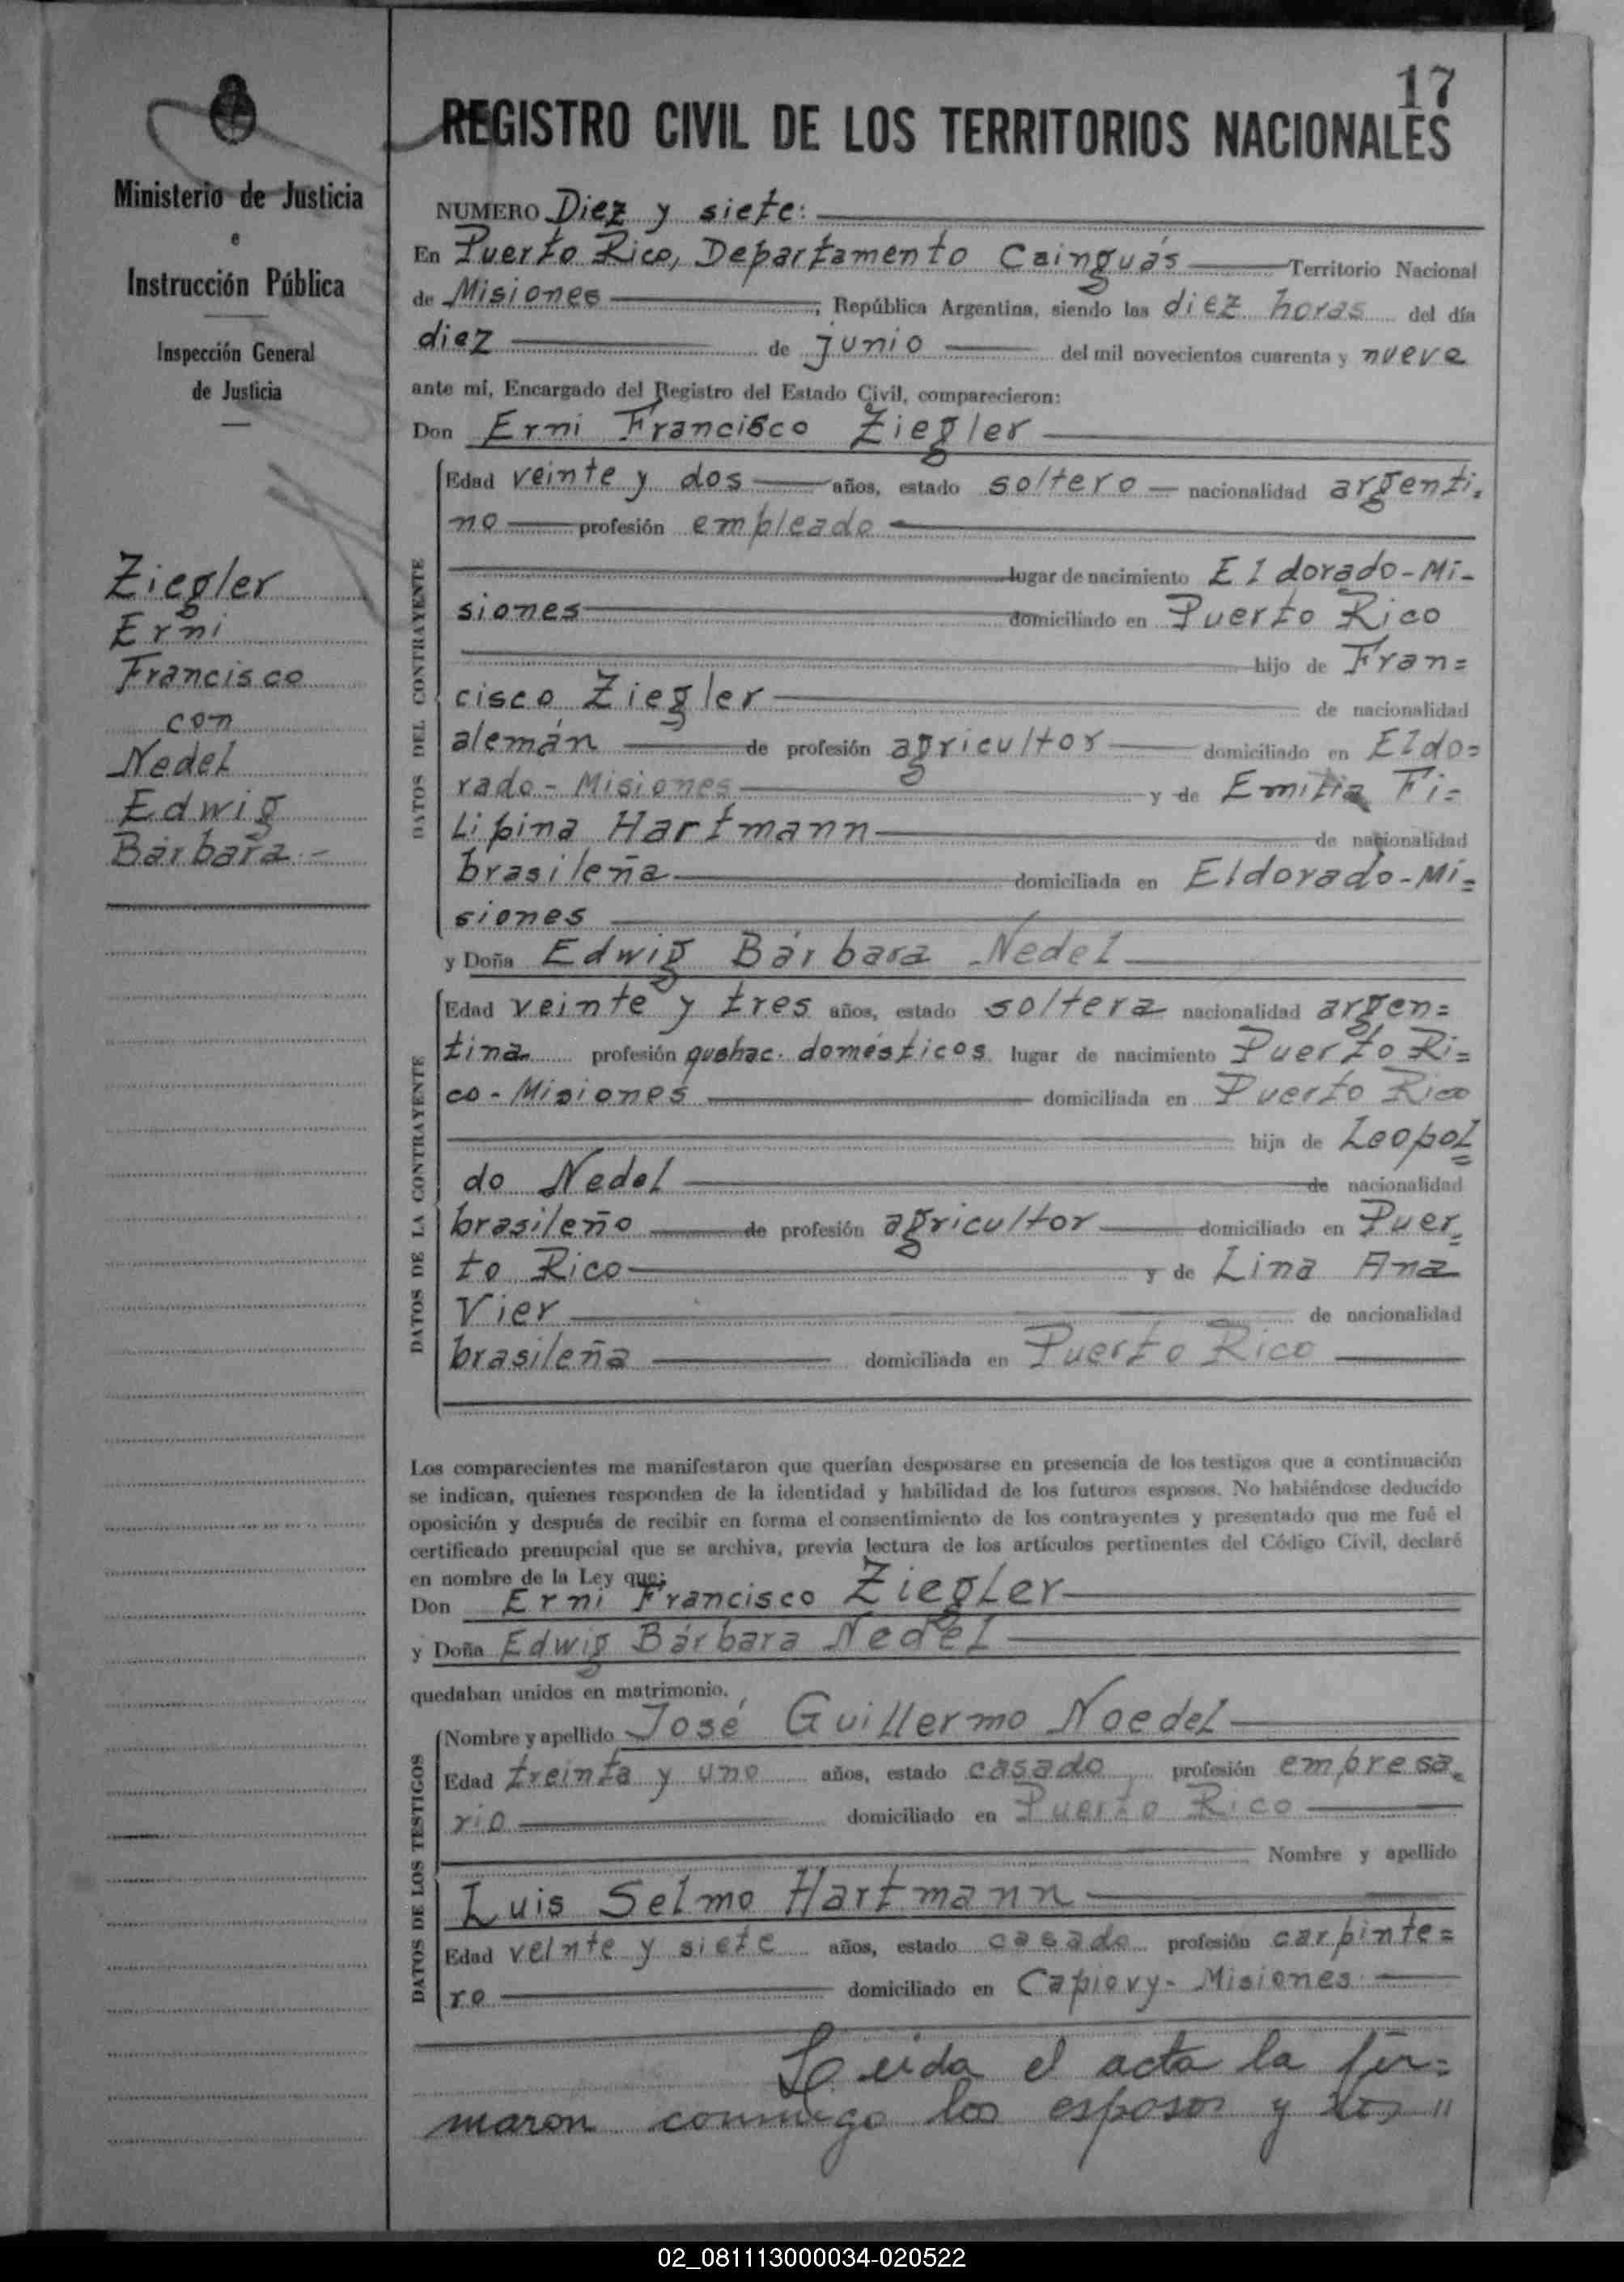 17
REGISTRO CIVIL DE LOS TERRITORIOS NACIONALES
Ministerio de Justicia
e
Instrucción Pública
Inspección General
de Justicia
Ziegler
Erni
Francisco
con
Nedel
Edwig
Bárbara -
NUMERO Diez y siete:
En Puerto Rico, Departamento Cainguás Territorio Nacional
de Misiones, República Argentina, siendo las diez horas del día
diez de junio del mil novecientos cuarenta y nueve
ante mí, Encargado del Registro del Estado Civil, comparecieron:
Don Erni Francisco Ziegler
DATOS DEL CONTRAYENTE
Edad veinte y dos años, estado soltero nacionalidad argenti=
no profesión empleado
lugar de nacimiento Eldorado-Mi-
siones domiciliado en Puerto Rico
hijo de Fran=
cisco Ziegler de nacionalidad
alemán de profesión agricultor domiciliado en Eldo=
rado - Misiones y de Emilia Fi=
lipina Hartmann de nacionalidad
brasileña domiciliada en Eldorado-Mi=
siones
y Doña Edwig Bárbara Nedel
DATOS DE LA CONTRAYENTE
Edad veinte y tres años, estado soltera nacionalidad argen=
tina profesión quehac. domésticos lugar de nacimiento Puerto Ri=
co - Misiones domiciliada en Puerto Rico
hija de Leopol=
do Nedel de nacionalidad
brasileño de profesión agricultor domiciliado en Puer=
to Rico y de Lina Ana
Vier de nacionalidad
brasileña domiciliada en Puerto Rico
Los comparecientes me manifestaron que querían desposarse en presencia de los testigos que a continuación
se indican, quienes responden de la identidad y habilidad de los futuros esposos. No habiéndose deducido
oposición y después de recibir en forma el consentimiento de los contrayentes y presentado que me fué el
certificado prenupcial que se archiva, previa lectura de los artículos pertinentes del Código Civil, declaré
en nombre de la Ley que:
Don Erni Francisco Ziegler
y Doña Edwig Bárbara Nedel
quedaban unidos en matrimonio.
DATOS DE LOS TESTIGOS
Nombre y apellido José Guillermo Noedel
Edad treinta y uno años, estado casado, profesión empresa=
rio domiciliado en Puerto Rico
Nombre y apellido
Luis Selmo Hartmann
Edad veinte y siete años, estado casado profesión carpinte=
ro domiciliado en Capiovy - Misiones
Leida el acta la fir=
maron conmigo los esposos y los "
02_081113000034-020522